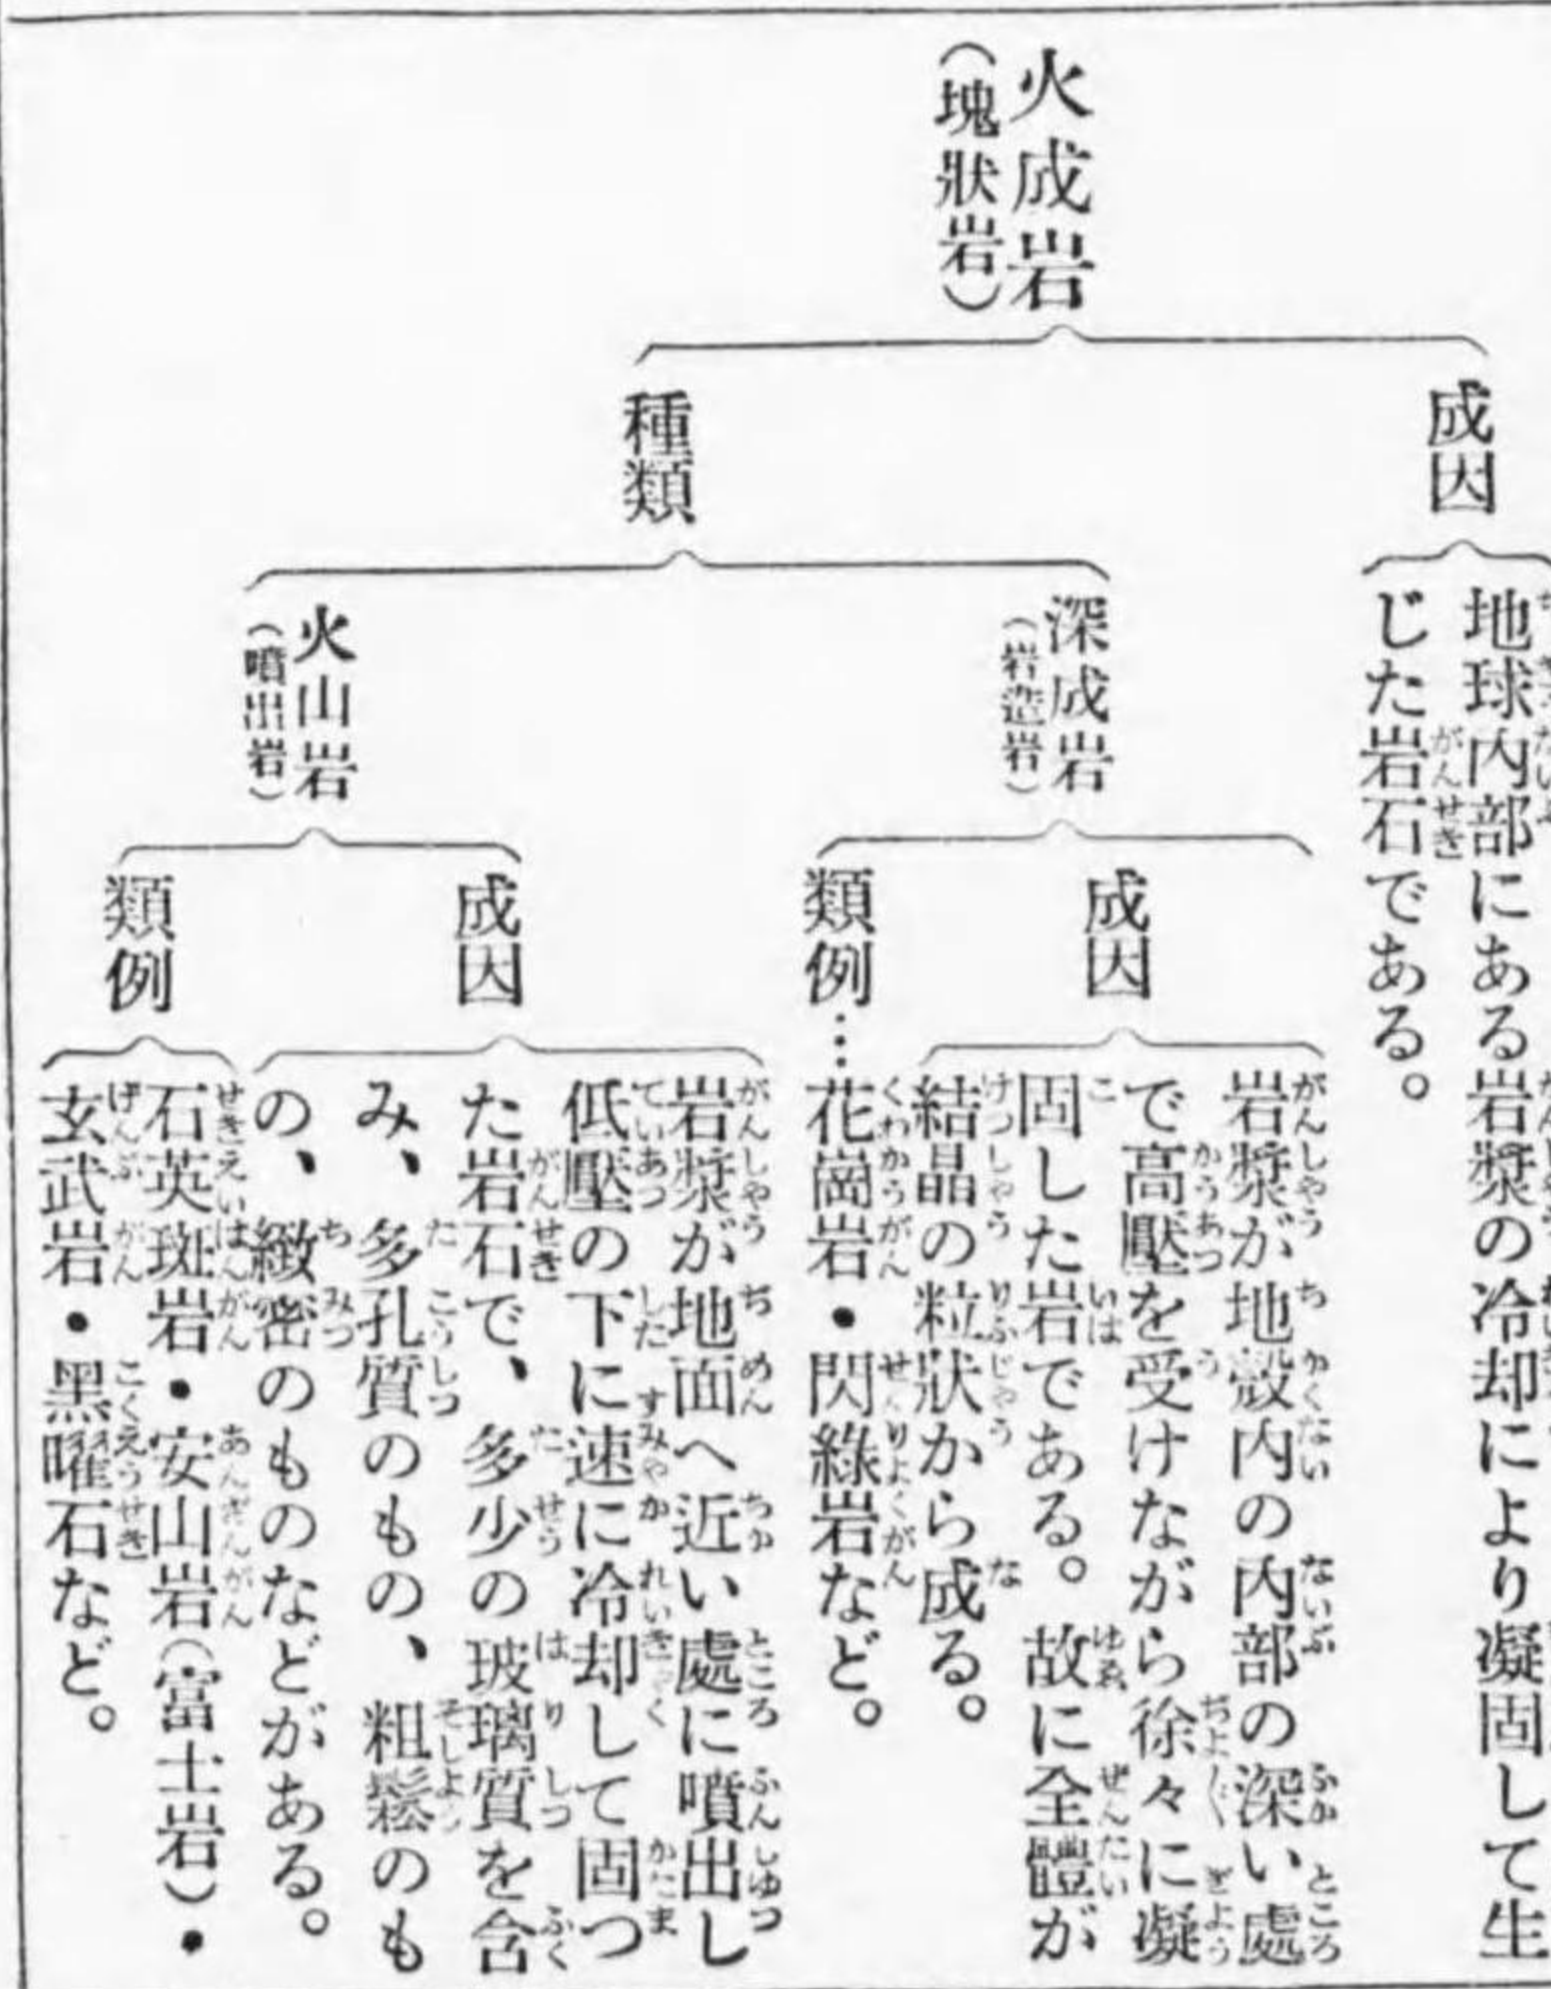 火成岩
(塊狀岩)
成因
地球內部にある岩漿の冷却により凝固して生
じた岩石である。
種類
深成岩
(岩造岩)
成因
岩漿が地殼內の內部の深い處
で高壓を受けながら徐々に凝
固した岩である。故に全體が
結晶の粒狀から成る。
類例…花崗岩・閃綠岩など。
火山岩
(噴出岩)
成因
岩漿が地面へ近い處に噴出し
低壓の下に速に冷却して固つ
た岩石で、多少の玻璃質を含
み、多孔質のもの、粗鬆のも
の、緻密のものなどがある。
類例
石英斑岩・安山岩(富士岩)・
玄武岩・黑曜石など。